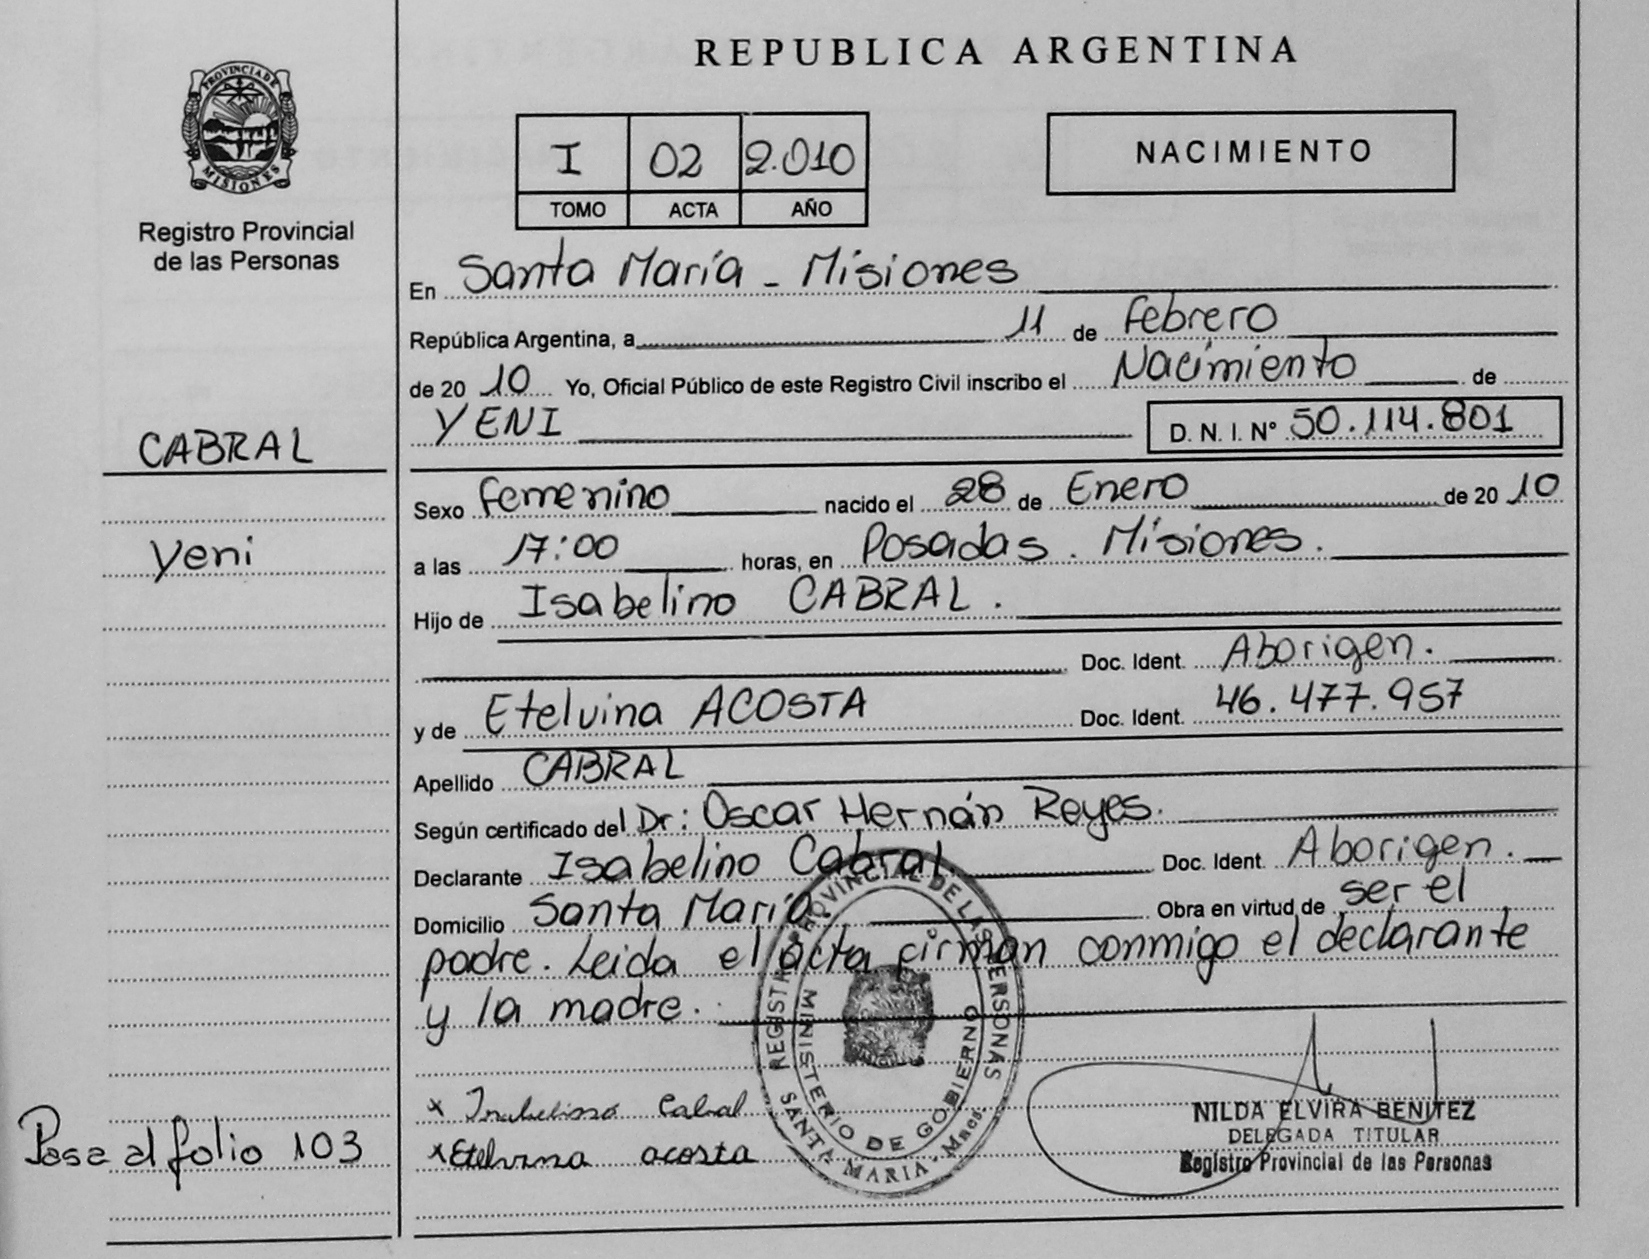 REPUBLICA ARGENTINA
PROVINCIA DE MISIONES
Registro Provincial
de las Personas
I 02 2.010
TOMO ACTA AÑO
NACIMIENTO
En Santa María - Misiones
República Argentina, a 11 de Febrero
de 20 10 Yo, Oficial Público de este Registro Civil inscribo el Nacimiento de
YENI D. N. I. Nº 50.114.801
CABRAL
Sexo femenino nacido el 28 de Enero de 20 10
Yeni
a las 17:00 horas, en Posadas. Misiones.
Hijo de Isabelino CABRAL.
Doc. Ident. Aborigen.
y de Etelvina ACOSTA Doc. Ident. 46.477.957
Apellido CABRAL
Según certificado del Dr: Oscar Hernán Reyes.
Declarante Isabelino Cabral. Doc. Ident. Aborigen.
Domicilio Santa María. Obra en virtud de ser el
padre. Leida el acta firman conmigo el declarante
y la madre.
REGISTRO PROVINCIAL DE LAS PERSONAS
MINISTERIO DE GOBIERNO
SANTA MARIA - Mnes.
x Isabelino Cabral
x Etelvina acosta
NILDA ELVIRA BENITEZ
DELEGADA TITULAR
Registro Provincial de las Personas
Pasa al folio 103